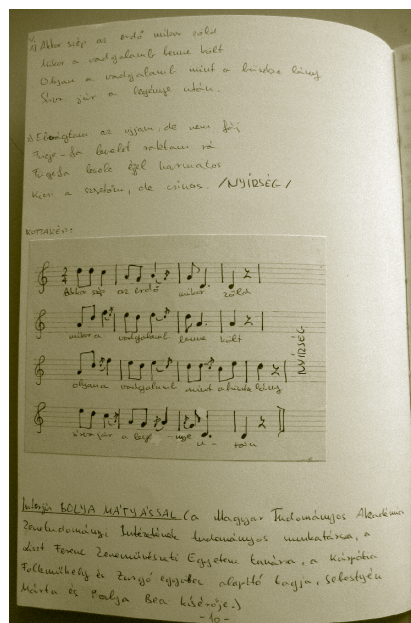 V.
1) Akkor szép az erdő mikor zöld
Mikor a vadgalamb benne költ
Olyan a vadgalamb mint a büszke lány
Sírva jár a legénye után.
2) Elvágtam az ujjam, de nem fáj
Fügefa levelet raktam rá
Fügefa levele éjjel harmatos
Kicsi a szeretőm, de csinos. /NYÍRSÉG/
KOTTAKÉP:
Akkor szép az erdő mikor zöld
mikor a vadgalamb benne költ
olyan a vadgalamb mint a büszke lány
sírva jár a legé - nye u - tán
NYÍRSÉG
Interjú BOLYA MÁTYÁSSAL (a Magyar Tudományos Akadémia
Zenetudományi Intézetének tudományos munkatársa, a
Liszt Ferenc Zeneművészeti Egyetem tanára, a Kárpátia
Folkműhely és Zurgó együttes alapító tagja, Sebestyén
Márta és Palya Bea kísérője.)
- 10 -